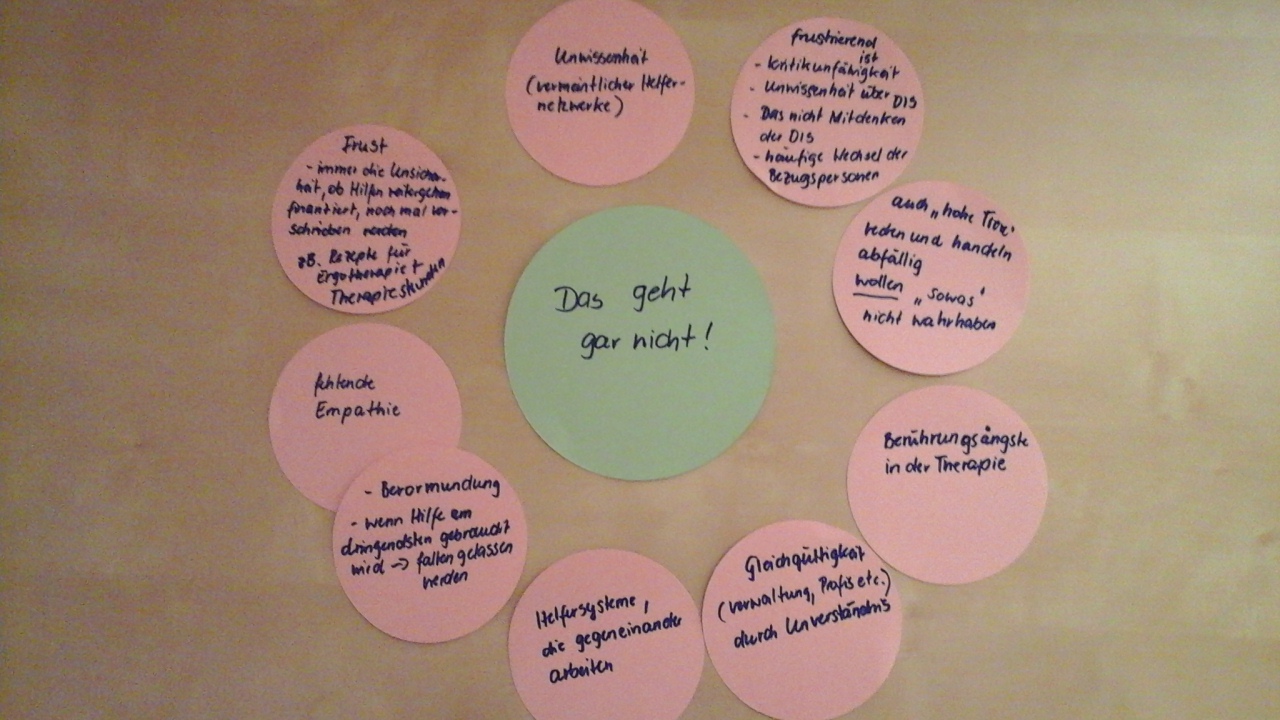 Das geht
gar nicht!
Unwissenheit
(vermeintlicher Helfer-
netzwerke)
frustrierend
ist
- kritikunfähigkeit
- Unwissenheit über DIS
- Das nicht Mitdenken
der DIS
- häufige Wechsel der
Bezugspersonen
auch „hohe Tiere"
reden und handeln
abfällig
wollen „sowas"
nicht wahrhaben
Berührungsängste
in der Therapie
Gleichgültigkeit
(Verwaltung, Profis etc.)
durch Unverständnis
Helfersysteme,
die gegeneinander
arbeiten
- Bevormundung
- wenn Hilfe am
dringendsten gebraucht
wird → fallen gelassen
werden
fehlende
Empathie
Frust
- immer die Unsicher-
heit, ob Hilfen weitergehen
finanziert, noch mal ver-
schrieben werden
zB. Rezepte für
Ergotherapie +
Therapiestunden